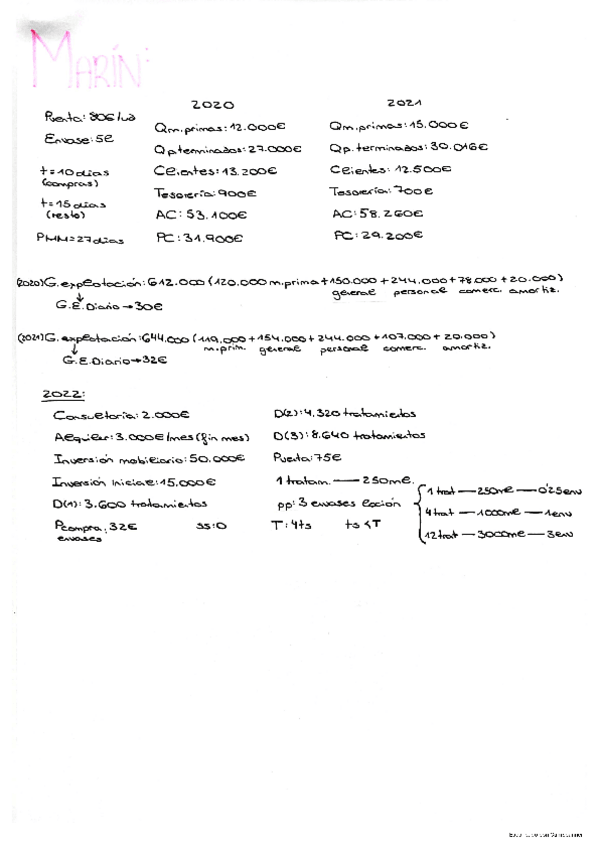 MARÍN:
2020 2021
Pventa: 80€/ud
Envase: 5€
t = 10 días (compras)
t = 15 días (resto)
PMM = 27 días
Qm.primas: 12.000€ Qm.primas: 15.000€
Qp.terminados: 27.000€ Qp.terminados: 30.016€
Clientes: 13.200€ Clientes: 12.500€
Tesorería: 900€ Tesorería: 700€
AC: 53.100€ AC: 58.260€
PC: 31.900€ PC: 29.200€
(2020) G. explotación: 612.000 (120.000 m.prima + 150.000 + 244.000 + 78.000 + 20.000)
general personal comerc. amortiz.
G.E. Diario → 30€
(2021) G. explotación: 644.000 (119.000 + 154.000 + 244.000 + 107.000 + 20.000)
m.prim. general personal comerc. amortiz.
G.E. Diario → 32€
2022:
Consultoría: 2.000€ D(2): 4.320 tratamientos
Alquiler: 3.000€/mes (fin mes) D(3): 8.640 tratamientos
Inversión mobiliario: 50.000€ Pventa: 75€
Inversión inicial: 15.000€ 1 tratam. — 250ml.
D(1): 3.600 tratamientos pp: 3 envases loción
1 trat — 250ml — 0'25env
4 trat — 1000ml — 1env
12 trat — 3000ml — 3env
Pcompra envases: 32€ ss: 0 T: 4ts ts < T